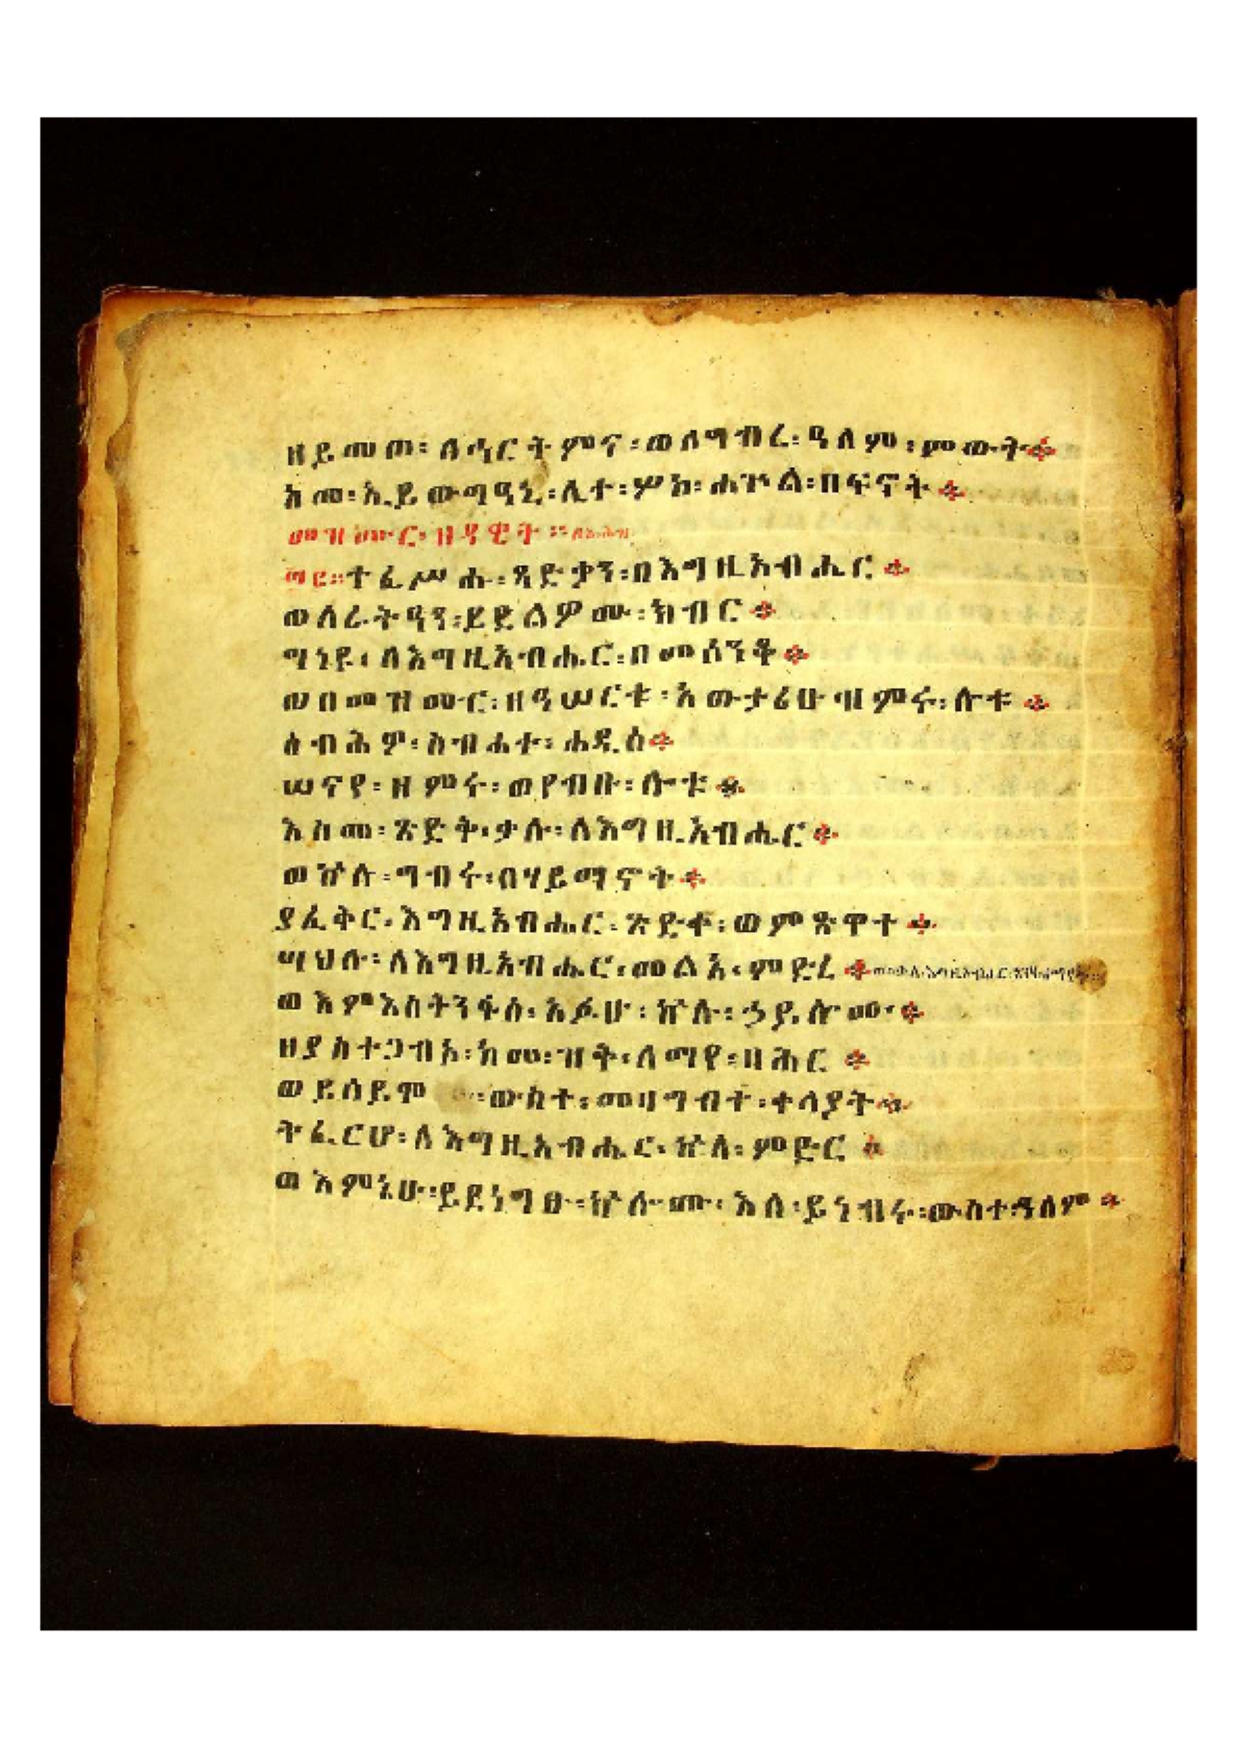 ዘይመጦ፡ ለሓርትምና፡ ወለግብረ፡ ዓለም፡ ምውት፨
አመ፡ ኢይውግዓኒ፡ ሊተ፡ ሦክ፡ ሐጕል፡ በፍኖት፨
መዝሙር፡ ዘዳዊት፡
፴፪። ተፈሥሑ፡ ጻድቃን፡ በእግዚአብሔር፨
ወለራትዓን፡ ይደልዎሙ፡ ክብር፨
ግነዩ፡ ለእግዚአብሔር፡ በመሰንቆ፨
ወበመዝሙር፡ ዘዓሠርቱ፡ አውታሪሁ፡ ዘምሩ፡ ሎቱ፨
ሰብሕዎ፡ ስብሐተ፡ ሐዲሰ፨
ሠናየ፡ ዘምሩ፡ ወየብቡ፡ ሎቱ፨
እስመ፡ ጽድቅ፡ ቃሉ፡ ለእግዚአብሔር፨
ወኵሉ፡ ግብሩ፡ በሃይማኖት፨
ያፈቅር፡ እግዚአብሔር፡ ጽድቀ፡ ወምጽዋተ፨
ሣህሉ፡ ለእግዚአብሔር፡ መልአ፡ ምድረ፨ ወበቃለ፡ እግዚአብሔር፡ ጸንዓ፡ ሰማያት።
ወእምእስትንፋሰ፡ አፉሁ፡ ኵሉ፡ ኃይሎሙ፨
ዘያስተጋብኦ፡ ከመ፡ ዝቅ፡ ለማየ፡ ባሕር፨
ወይሰይሞ፡ ውስተ፡ መዛግብተ፡ ቀላያት፨
ትፈርሆ፡ ለእግዚአብሔር፡ ኵላ፡ ምድር፨
ወእምኔሁ፡ ይደነግፁ፡ ኵሎሙ፡ እለ፡ ይነብሩ፡ ውስተ፡ ዓለም፨